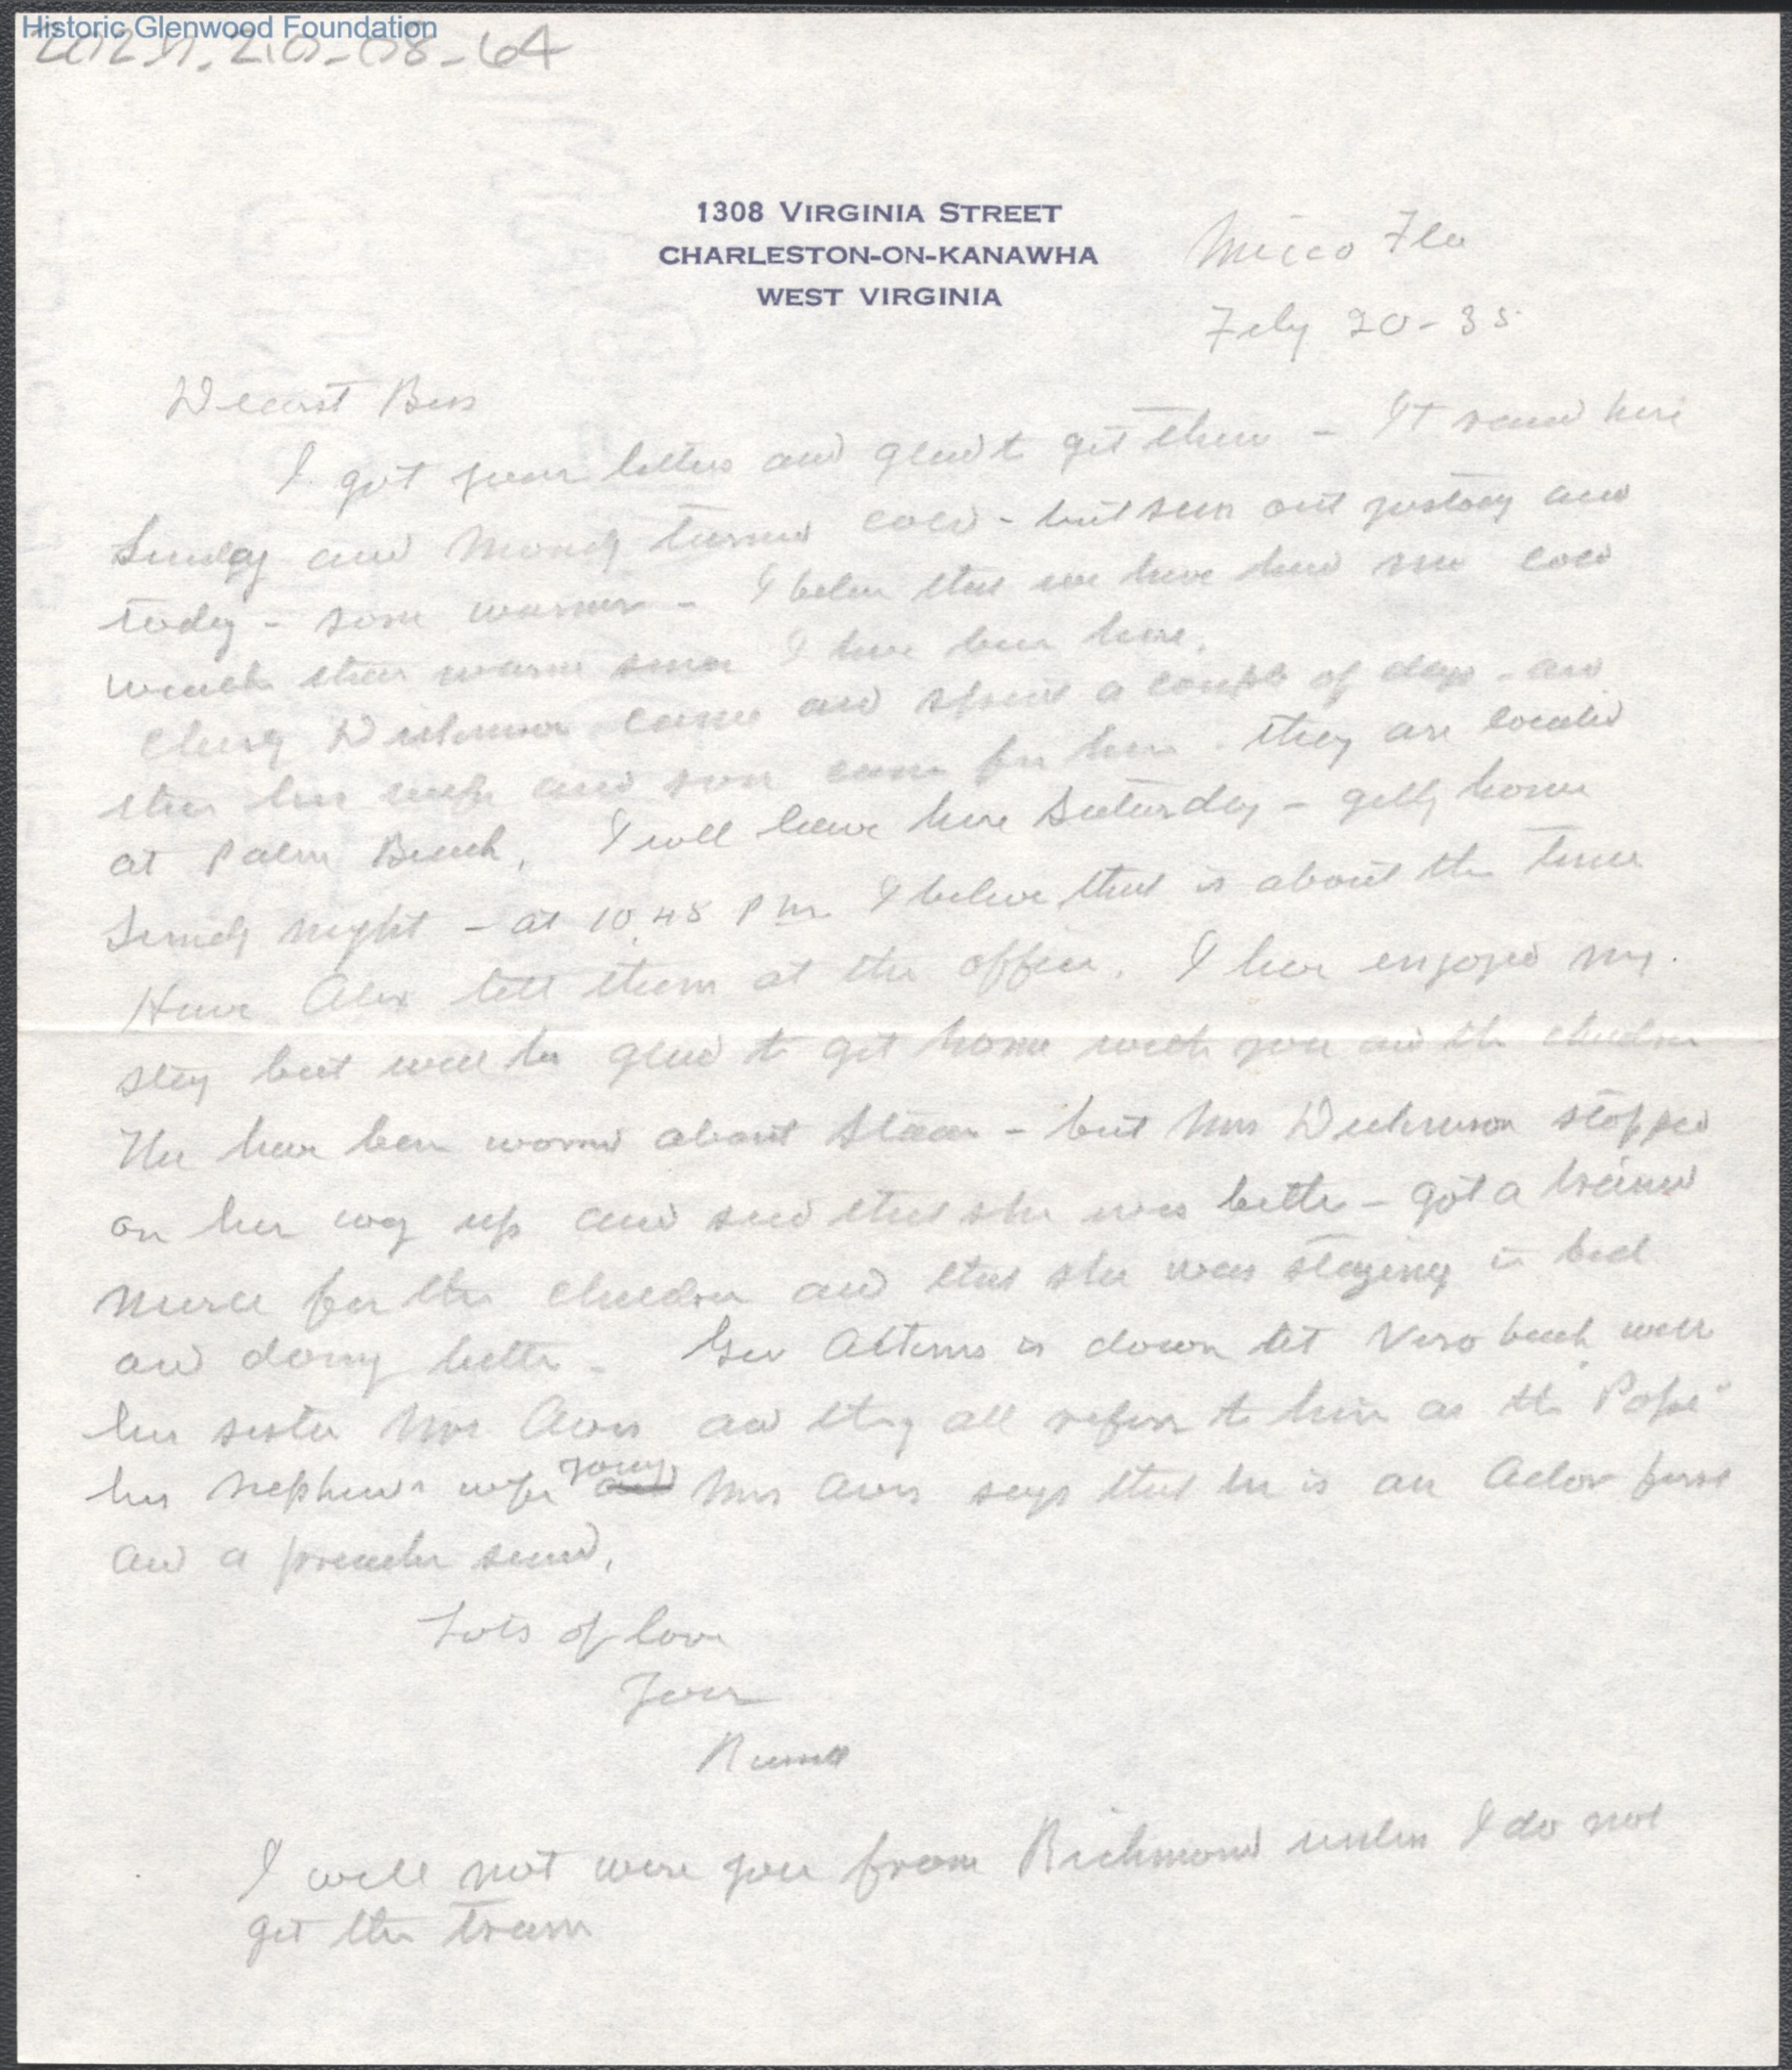 Historic Glenwood Foundation
2024.210-08-64
1308 VIRGINIA STREET
CHARLESTON-ON-KANAWHA
WEST VIRGINIA
Micco Fla
Feby 20-35
Dearest Bess
I got your letters and glad to get them - It raind here
Sunday and Monday turned cold - but sun out yestday and
today - some warmer - I beleve that we have had more cold
weath then warm since I have been here.
Dickinson came and spent a couple of days - and
then his wife and son came for him. They are located
at Palm Beach. I will leave here Saturday - getty home
Sundy night - at 10.45 Pm I beleve that is about the time
Have Alex tell them at the office. I have enjoyed my
stay but will be glad to get home with you and the children
We have been worried about - but Mrs Dickinson stopped
on her way up and said that she was better - got a trained
nurse for the children and that she was staying in bed
and doing better - Atkins is down at Vero beach with
his sister Mrs and they all refer to him as the "Pope"
his nephews wife young Mrs says that he is an Actor first
and a preacher second.
Lots of love
Your

I will not wire you from Richmond unless I do not
get the train